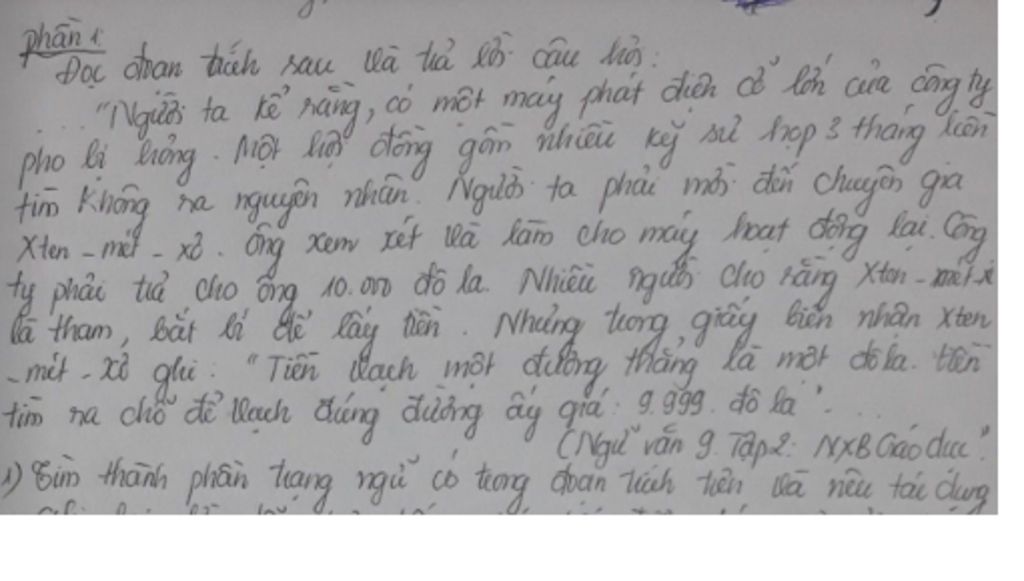 Phần 1:
Đọc đoạn trích sau và trả lời câu hỏi:
"Người ta kể rằng, có một máy phát điện cỡ lớn của công ty
pho bị hỏng. Một hội đồng gồm nhiều kỹ sư họp 3 tháng liền
tìm không ra nguyên nhân. Người ta phải mời đến chuyên gia
Xten-mét-xơ. Ông xem xét và làm cho máy hoạt động lại. Công
ty phải trả cho ông 10.000 đô la. Nhiều người cho rằng Xten-mét-x
là tham, bắt bí để lấy tiền. Nhưng trong giấy biên nhận Xten
-mét-xơ ghi: "Tiền vạch một đường thẳng là một đô la. tiền
tìm ra chỗ để vạch đúng đường ấy giá: 9.999. đô la"....
(Ngữ văn 9. Tập 2: NXB Giáo dục".
1) Tìm thành phần trạng ngữ có trong đoạn trích trên và nêu tác dụng